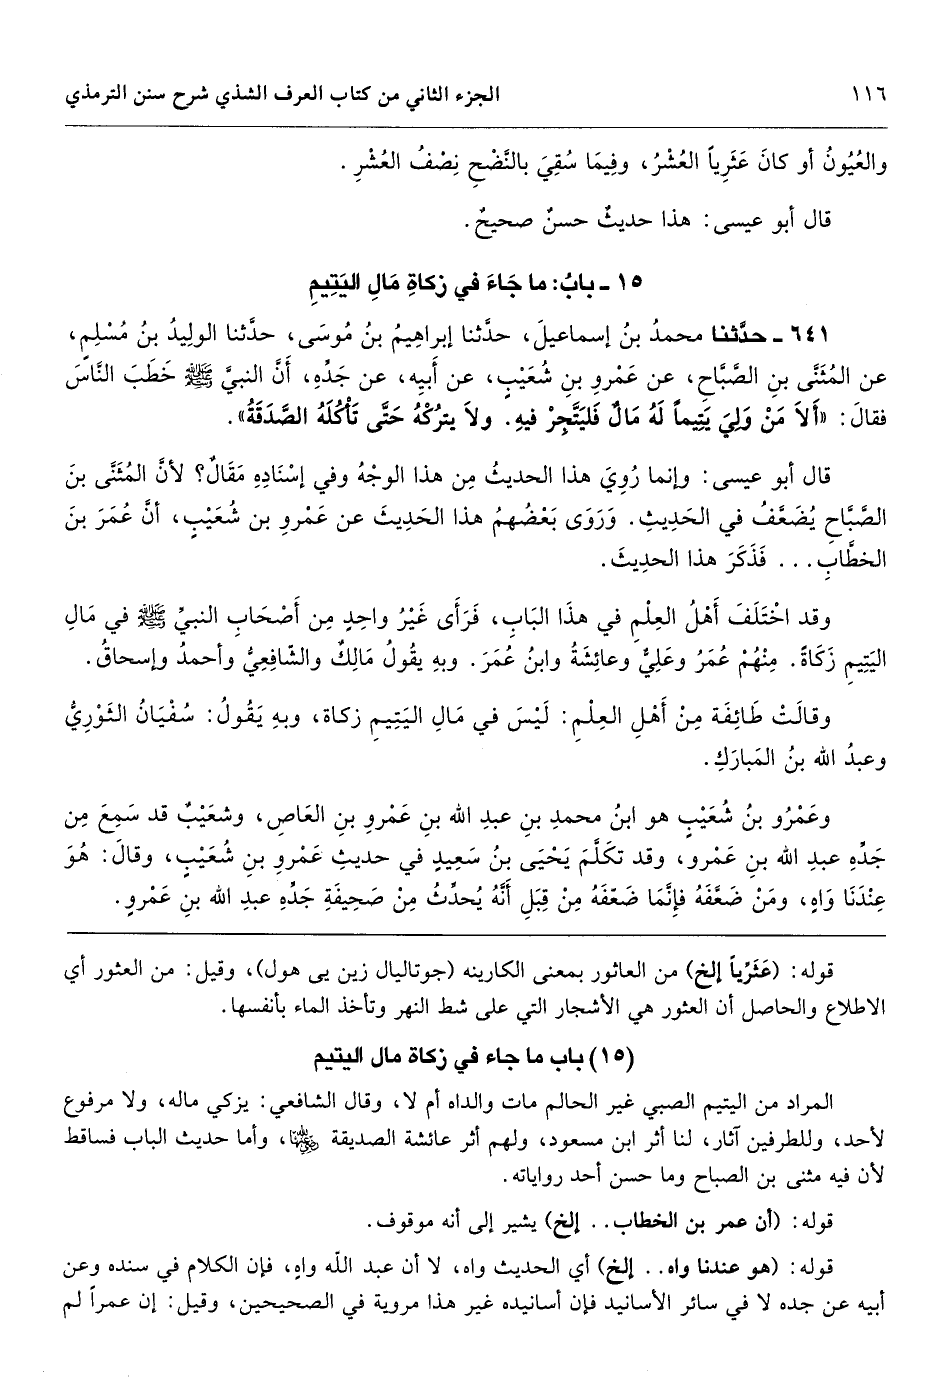 ١١٦ الجزء الثاني من كتاب العرف الشذي شرح سنن الترمذي
والعُيُونُ أو كانَ عَثَرِياً العُشْرُ، وفِيمَا سُقِيَ بالنَّضْحِ نِصْفُ العُشْرِ.
قال أبو عيسى: هذا حديثٌ حسنٌ صحيحٌ.
١٥ ـ بابُ: ما جَاءَ في زكاةِ مَالِ اليَتِيمِ
٦٤١ ـ حدَّثنا محمدُ بنُ إسماعيلَ، حدَّثنا إبراهِيمُ بنُ مُوسَى، حدَّثنا الوليدُ بنُ مُسْلِمٍ،
عن المُثَنَّى بنِ الصَّبَّاحِ، عن عَمْرِو بنِ شُعَيْبٍ، عن أَبِيهِ، عن جَدِّهِ، أَنَّ النبيَّ ﷺ خَطَبَ النَّاسَ
فقالَ: «أَلاَ مَنْ وَلِيَ يَتِيماً لَهُ مَالٌ فَليَتَّجِرْ فيهِ. ولاَ يترُكْهُ حَتَّى تَأْكُلَهُ الصَّدَقَةُ».
قال أبو عيسى: وإنما رُوِيَ هذا الحديثُ مِن هذا الوجْهُ وفي إسْنَادِهِ مَقَالٌ؟ لأنَّ المُثَنَّى بنَ
الصَّبَّاحِ يُضَعَّفُ في الحَدِيثِ. وَرَوَى بَعْضُهمُ هذا الحَدِيثَ عن عَمْرِو بن شُعَيْبٍ، أنَّ عُمَرَ بنَ
الخطَّابِ... فَذَكَرَ هذا الحديثَ.
وقد اخْتَلَفَ أَهْلُ العِلْمِ في هذَا البَابِ، فَرَأى غَيْرُ واحِدٍ مِن أَصْحَابِ النبيِّ ﷺ في مَالِ
اليَتِيمِ زَكَاةً. مِنْهُمْ عُمَرُ وعَلِيٌّ وعائِشَةُ وابنُ عُمَرَ. وبهِ يقُولُ مَالِكٌ والشَّافِعِيُّ وأحمدُ وإسحاقُ.
وقالَتْ طَائِفَة مِنْ أَهْلِ العِلْمِ: لَيْسَ في مَالِ اليَتِيمِ زكاة، وبهِ يَقُولُ: سُفْيَانُ الثَوْرِيُّ
وعبدُ الله بنُ المَبارَكِ.
وعَمْرُو بنُ شُعَيْبٍ هو ابنُ محمدِ بنِ عبدِ الله بنِ عَمْرِو بنِ العَاصِ، وشعَيْبٌ قد سَمِعَ مِن
جَدِّهِ عبدِ الله بنِ عَمْرو، وقد تكلَّمَ يَحْيَى بنُ سَعِيدٍ في حديثِ عَمْرِو بنِ شُعَيْبٍ، وقالَ: هُوَ
عِنْدَنَا وَاهٍ، ومَنْ ضَعَّفَهُ فإِنَّمَا ضَعّفَهُ مِنْ قِبَلِ أَنَّهُ يُحدِّثُ مِنْ صَحِيفَةِ جَدِّهِ عبدِ الله بنِ عَمْرو.
قوله: (عَثَرِّياً إلخ) من العاثور بمعنى الكاريثه (جوتاليال زين يى هول)، وقيل: من العثور أي
الاطلاع والحاصل أن العثور هي الأشجار التي على شط النهر وتأخذ الماء بأنفسها.
(١٥) باب ما جاء في زكاة مال اليتيم
المراد من اليتيم الصبي غير الحالم مات والداه أم لا، وقال الشافعي: يزكي ماله، ولا مرفوع
لأحد، وللطرفين آثار، لنا أثر ابن مسعود، ولهم أثر عائشة الصديقة رضي الله عنها، وأما حديث الباب فساقط
لأن فيه مثنى بن الصباح وما حسن أحد رواياته.
قوله: (أن عمر بن الخطاب.. إلخ) يشير إلى أنه موقوف.
قوله: (هو عندنا واه.. إلخ) أي الحديث واه، لا أن عبد اللّه واهٍ، فإن الكلام في سنده وعن
أبيه عن جده لا في سائر الأسانيد فإن أسانيده غير هذا مروية في الصحيحين، وقيل: إن عمراً لم